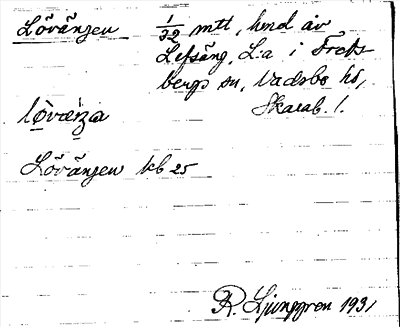 Lövängen 1/32 mtt, hmd av
Lefsäng, L:a i Freds-
bergs sn, Vadsbo hd,
Skarab. l.
lø̀væŋa
Lövängen kb 25
R. Ljunggren 1931